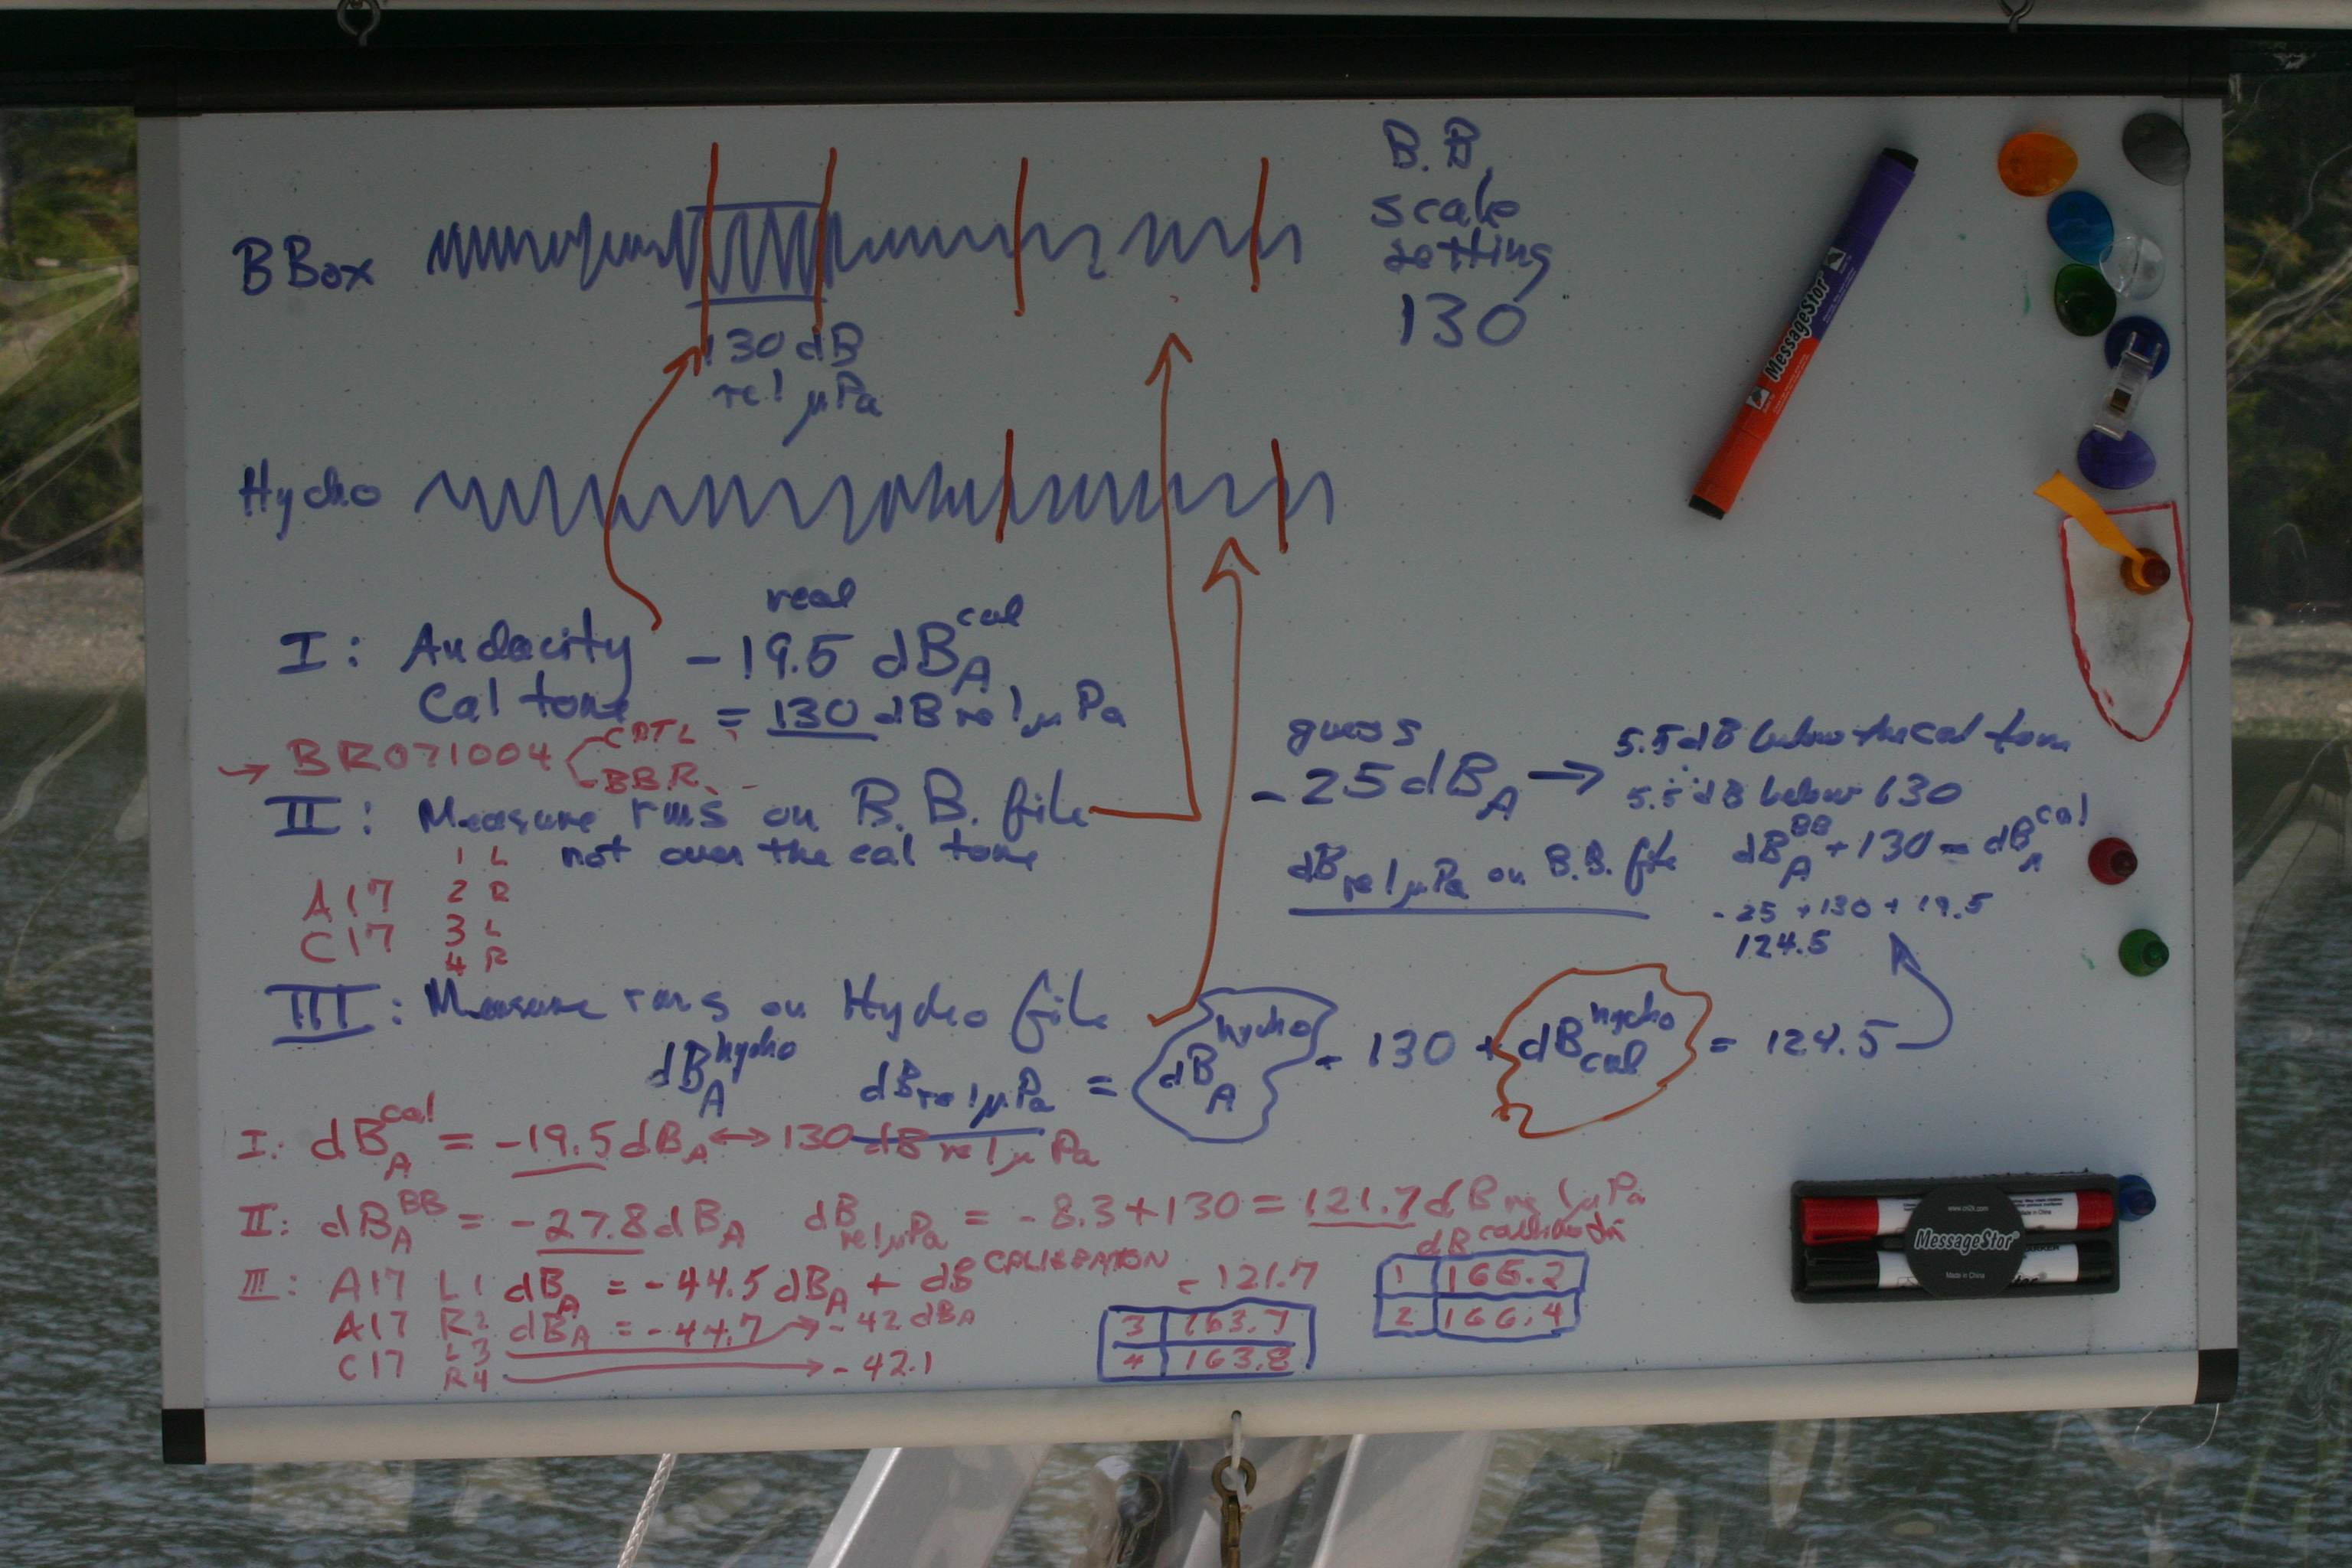 B.B.
scale
setting
130
BBox
130 dB
re 1 μPa
Hydro
real
I: Audacity -19.5 dB_A^cal
Cal tone = 130 dB re 1 μPa
→ BR071004
BBR
II: Measure rms on B.B. file
not over the cal tone
1 L
A17 2 R
C17 3 L
4 R
guess
-25 dB_A → 5.5 dB below the cal tone
∴
5.5 dB below 130
dB re 1 μPa on B.B. file dB_A^BB + 130 - dB_A^cal
-25 + 130 + 19.5
124.5
III: Measure rms on Hydro file
dB_A^hydro
dB re 1 μPa = dB_A^hydro + 130 + dB_cal^hydro = 124.5
I: dB_A^cal = -19.5 dB_A ↔ 130 dB re 1 μPa
II: dB_A^BB = -27.8 dB_A dB re 1 μPa = -8.3 + 130 = 121.7 dB re 1 μPa
III: A17 L1 dB_A = -44.5 dB_A + dB^CALIBRATION = 121.7
A17 R2 dB_A = -44.7
C17 L3 → -42 dB_A
R4 → -42.1
dB calibration
1 166.2
2 166.4
3 163.7
4 163.8
MessageStor
MessageStor®
www.cr2k.com
Made in China